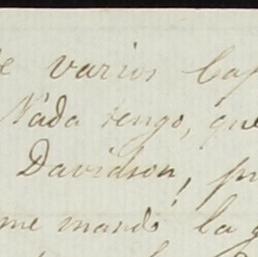 e varios Cap
Nada tengo, que
Davidson, pr
me mandó la g